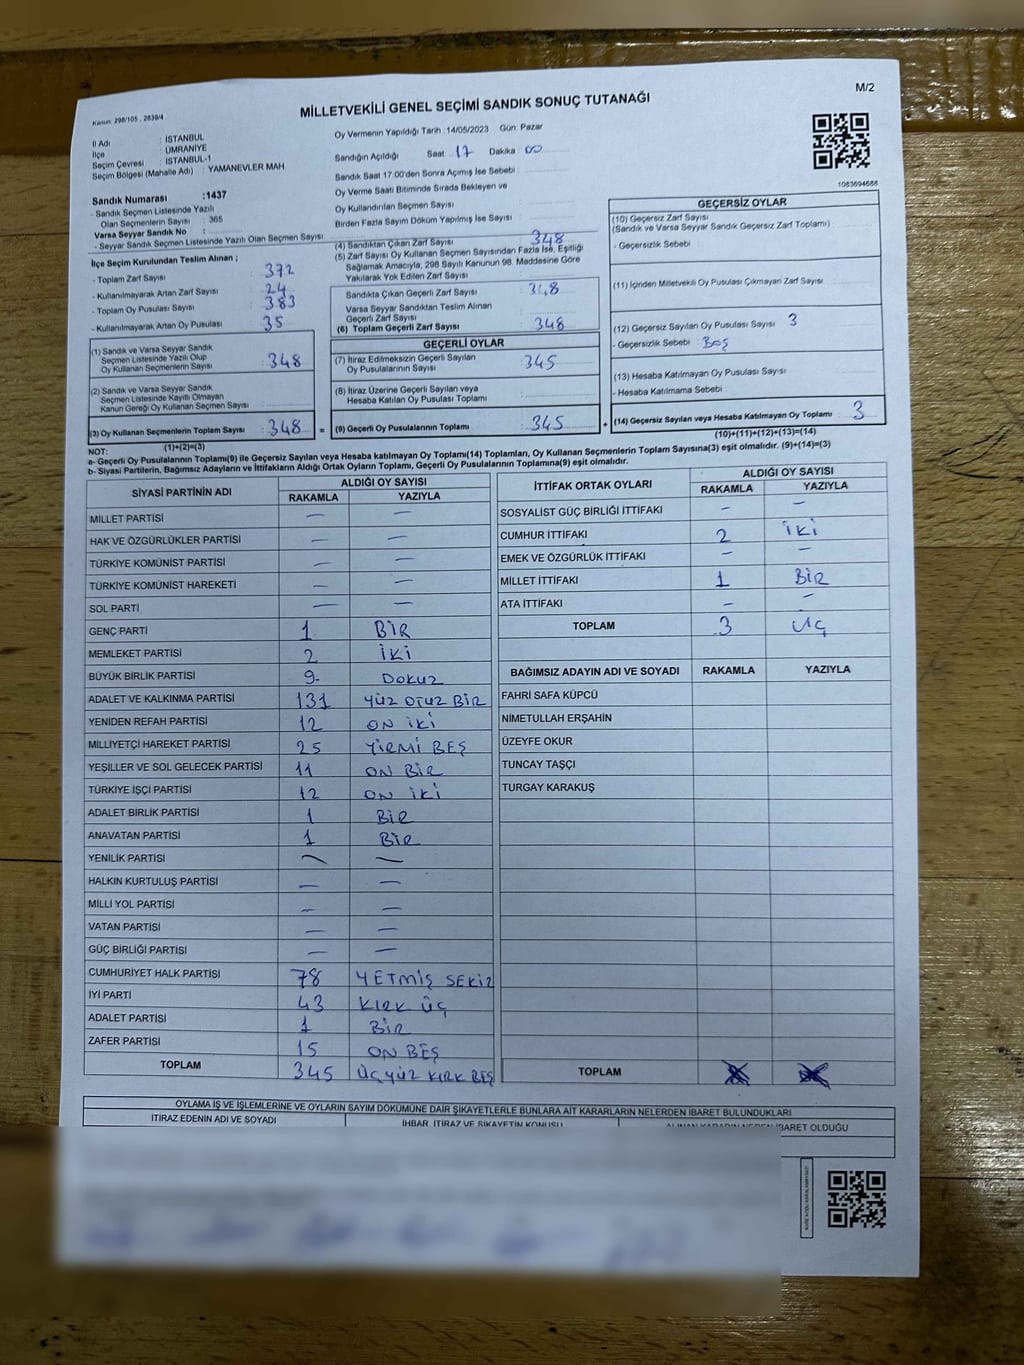 M/2
MİLLETVEKİLİ GENEL SEÇİMİ SANDIK SONUÇ TUTANAĞI
Kanun: 298/105 , 2839/4
İl Adı : İSTANBUL
İlçe : ÜMRANİYE
Seçim Çevresi : İSTANBUL-1
Seçim Bölgesi (Mahalle Adı) : YAMANEVLER MAH
Sandık Numarası :1437
- Sandık Seçmen Listesinde Yazılı
Olan Seçmenlerin Sayısı : 365
Varsa Seyyar Sandık No :
- Seyyar Sandık Seçmen Listesinde Yazılı Olan Seçmen Sayısı:
İlçe Seçim Kurulundan Teslim Alınan ;
- Toplam Zarf Sayısı : 372
- Kullanılmayarak Artan Zarf Sayısı : 24
- Toplam Oy Pusulası Sayısı : 383
- Kullanılmayarak Artan Oy Pusulası : 35
(1) Sandık ve Varsa Seyyar Sandık
Seçmen Listesinde Yazılı Olup
Oy Kullanan Seçmenlerin Sayısı : 348
(2) Sandık ve Varsa Seyyar Sandık
Seçmen Listesinde Kayıtlı Olmayan
Kanun Gereği Oy Kullanan Seçmen Sayısı
(3) Oy Kullanan Seçmenlerin Toplam Sayısı : 348 =
(1)+(2)=(3)
Oy Vermenin Yapıldığı Tarih :14/05/2023 Gün: Pazar
Sandığın Açıldığı Saat : 17 Dakika : 00
Sandık Saat 17:00'den Sonra Açımış İse Sebebi :
Oy Verme Saati Bitiminde Sırada Bekleyen ve
Oy Kullandırılan Seçmen Sayısı :
Birden Fazla Sayım Döküm Yapılmış İse Sayısı :
(4) Sandıktan Çıkan Zarf Sayısı : 348
(5) Zarf Sayısı Oy Kullanan Seçmen Sayısından Fazla İse, Eşitliği
Sağlamak Amacıyla, 298 Sayılı Kanunun 98. Maddesine Göre
Yakılarak Yok Edilen Zarf Sayısı :
Sandıkta Çıkan Geçerli Zarf Sayısı : 348
Varsa Seyyar Sandıktan Teslim Alınan
Geçerli Zarf Sayısı :
(6) Toplam Geçerli Zarf Sayısı : 348
GEÇERLİ OYLAR
(7) İtiraz Edilmeksizin Geçerli Sayılan
Oy Pusulalarının Sayısı : 345
(8) İtiraz Üzerine Geçerli Sayılan veya
Hesaba Katılan Oy Pusulası Toplamı :
(9) Geçerli Oy Pusulalarının Toplamı : 345 +
1083694688
GEÇERSİZ OYLAR
(10) Geçersiz Zarf Sayısı
(Sandık ve Varsa Seyyar Sandık Geçersiz Zarf Toplamı) :
- Geçersizlik Sebebi :
(11) İçinden Milletvekili Oy Pusulası Çıkmayan Zarf Sayısı:
(12) Geçersiz Sayılan Oy Pusulası Sayısı : 3
- Geçersizlik Sebebi : Boş
(13) Hesaba Katılmayan Oy Pusulası Sayısı :
- Hesaba Katılmama Sebebi :
(14) Geçersiz Sayılan veya Hesaba Katılmayan Oy Toplamı : 3
(10)+(11)+(12)+(13)=(14)
NOT:
a- Geçerli Oy Pusulalarının Toplamı(9) ile Geçersiz Sayılan veya Hesaba katılmayan Oy Toplamı(14) Toplamları, Oy Kullanan Seçmenlerin Toplam Sayısına(3) eşit olmalıdır. (9)+(14)=(3)
b- Siyasi Partilerin, Bağımsız Adayların ve İttifakların Aldığı Ortak Oyların Toplamı, Geçerli Oy Pusulalarının Toplamına(9) eşit olmalıdır.
SİYASİ PARTİNİN ADI ALDIĞI OY SAYISI
RAKAMLA YAZIYLA
MİLLET PARTİSİ — —
HAK VE ÖZGÜRLÜKLER PARTİSİ — —
TÜRKİYE KOMÜNİST PARTİSİ — —
TÜRKİYE KOMÜNİST HAREKETİ — —
SOL PARTİ — —
GENÇ PARTİ 1 BİR
MEMLEKET PARTİSİ 2 İKİ
BÜYÜK BİRLİK PARTİSİ 9- DOKUZ
ADALET VE KALKINMA PARTİSİ 131 YÜZ OTUZ BİR
YENİDEN REFAH PARTİSİ 12 ON İKİ
MİLLİYETÇİ HAREKET PARTİSİ 25 YİRMİ BEŞ
YEŞİLLER VE SOL GELECEK PARTİSİ 11 ON BİR
TÜRKİYE İŞÇİ PARTİSİ 12 ON İKİ
ADALET BİRLİK PARTİSİ 1 BİR
ANAVATAN PARTİSİ 1 BİR
YENİLİK PARTİSİ — —
HALKIN KURTULUŞ PARTİSİ — —
MİLLİ YOL PARTİSİ — —
VATAN PARTİSİ — —
GÜÇ BİRLİĞİ PARTİSİ — —
CUMHURİYET HALK PARTİSİ 78 YETMİŞ SEKİZ
İYİ PARTİ 43 KIRK ÜÇ
ADALET PARTİSİ 1 BİR
ZAFER PARTİSİ 15 ON BEŞ
TOPLAM 345 ÜÇYÜZ KIRK BEŞ
İTTİFAK ORTAK OYLARI ALDIĞI OY SAYISI
RAKAMLA YAZIYLA
SOSYALİST GÜÇ BİRLİĞİ İTTİFAKI — —
CUMHUR İTTİFAKI 2 İKİ
EMEK VE ÖZGÜRLÜK İTTİFAKI — —
MİLLET İTTİFAKI 1 BİR
ATA İTTİFAKI — —
TOPLAM 3 ÜÇ
BAĞIMSIZ ADAYIN ADI VE SOYADI RAKAMLA YAZIYLA
FAHRİ SAFA KÜPCÜ
NİMETULLAH ERŞAHİN
ÜZEYFE OKUR
TUNCAY TAŞÇI
TURGAY KARAKUŞ
TOPLAM
OYLAMA İŞ VE İŞLEMLERİNE VE OYLARIN SAYIM DÖKÜMÜNE DAİR ŞİKAYETLERLE BUNLARA AİT KARARLARIN NELERDEN İBARET BULUNDUKLARI
İTİRAZ EDENİN ADI VE SOYADI İHBAR, İTİRAZ VE ŞİKAYETİN KONUSU ALINAN KARARIN NEDEN İBARET OLDUĞU